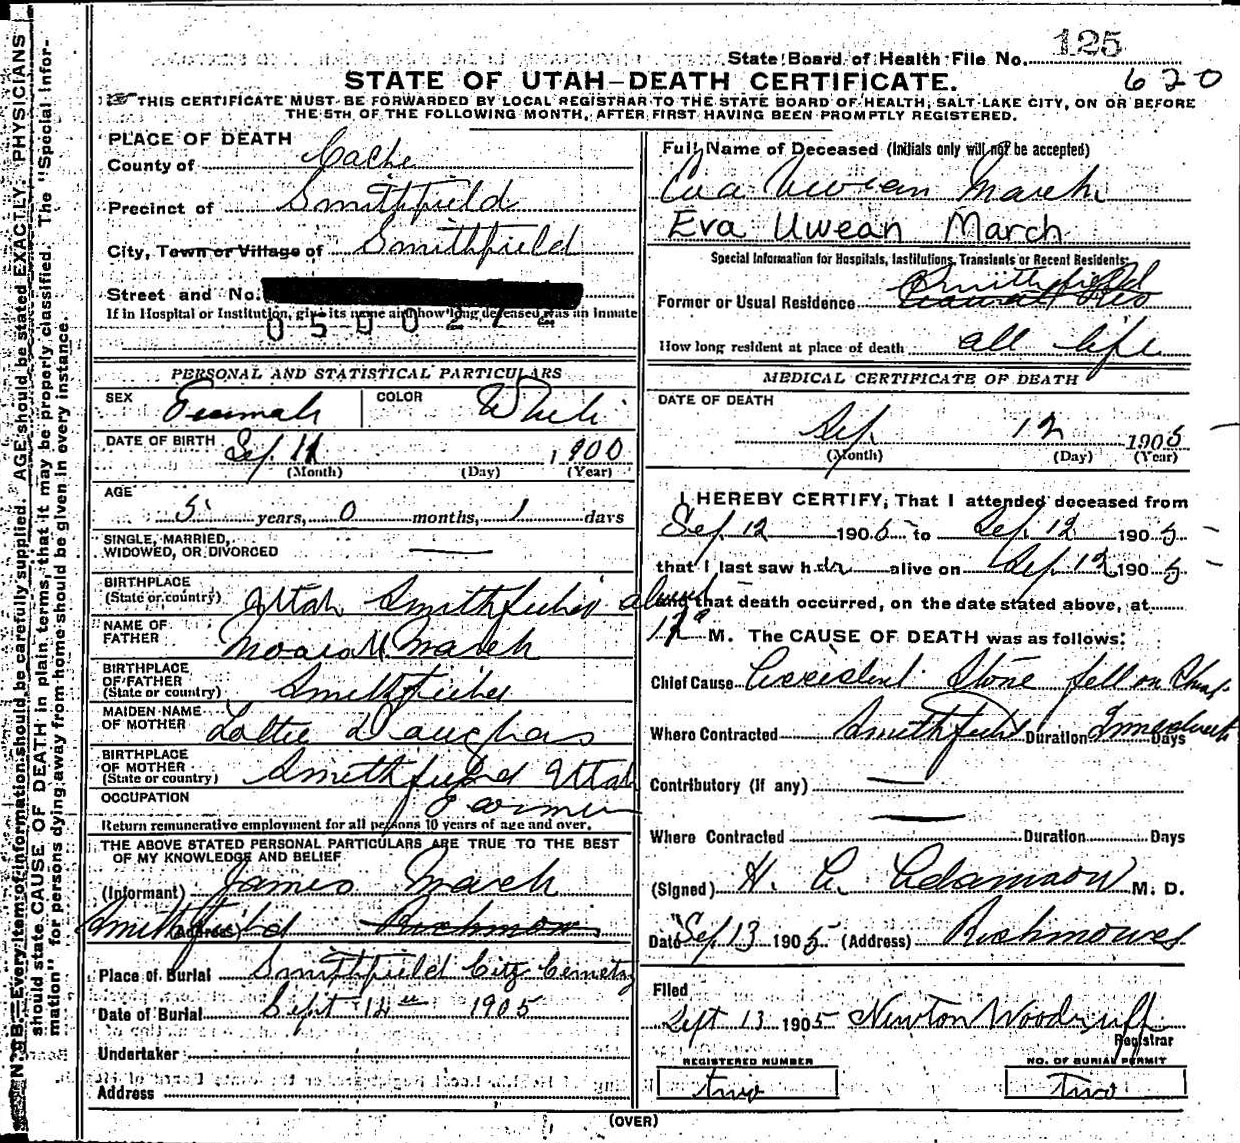 State Board of Health File No. 125
620
STATE OF UTAH—DEATH CERTIFICATE.
THIS CERTIFICATE MUST BE FORWARDED BY LOCAL REGISTRAR TO THE STATE BOARD OF HEALTH, SALT LAKE CITY, ON OR BEFORE
THE 5TH OF THE FOLLOWING MONTH, AFTER FIRST HAVING BEEN PROMPTLY REGISTERED.
PLACE OF DEATH
County of Cache
Precinct of Smithfield
City, Town or Village of Smithfield
Street and No.
If in Hospital or Institution, give its name and how long deceased was an inmate
0500272
PERSONAL AND STATISTICAL PARTICULARS
SEX Femah COLOR White
DATE OF BIRTH Sep. 11 1900
(Month) (Day) (Year)
AGE
5 years, 0 months, 1 days
SINGLE, MARRIED,
WIDOWED, OR DIVORCED —
BIRTHPLACE
(State or country) Utah Smithfield
NAME OF
FATHER March
BIRTHPLACE
OF FATHER
(State or country) Smithfield
MAIDEN NAME
OF MOTHER Lottie Daughas
BIRTHPLACE
OF MOTHER
(State or country) Smithfield Utah
OCCUPATION Farmer
Return remunerative employment for all persons 10 years of age and over.
THE ABOVE STATED PERSONAL PARTICULARS ARE TRUE TO THE BEST
OF MY KNOWLEDGE AND BELIEF
(Informant) James March
(Address) Smithfield Richmon
Place of Burial Smithfield City Cemetry
Date of Burial Sept 14th 1905
Undertaker
Address
Full Name of Deceased (Initials only will not be accepted)
Eva Uwean March
Eva Uwean March
Special Information for Hospitals, Institutions, Transients or Recent Residents:
Smithfield
Former or Usual Residence
How long resident at place of death all life
MEDICAL CERTIFICATE OF DEATH
DATE OF DEATH
Sep. 12 1905
(Month) (Day) (Year)
I HEREBY CERTIFY, That I attended deceased from
Sep. 12 1905 to Sep. 12 1905
that I last saw her alive on Sep. 12 1905
about
and that death occurred, on the date stated above, at
M. The CAUSE OF DEATH was as follows:
Chief Cause Accident. Stone fell on
Where Contracted Smithfield Duration Days
Contributory (If any) —
Where Contracted — Duration Days
(Signed) H. A. Adamson M. D.
Date Sep 13 1905 (Address)
Filed
Sept 13 1905 Newton Woodruff
Registrar
REGISTERED NUMBER
two
NO. OF BURIAL PERMIT
Two
(OVER)
N. B.—Every item of information should be carefully supplied. AGE should be stated EXACTLY. PHYSICIANS
should state CAUSE OF DEATH in plain terms, that it may be properly classified. The "Special Infor-
mation" for persons dying away from home should be given in every instance.